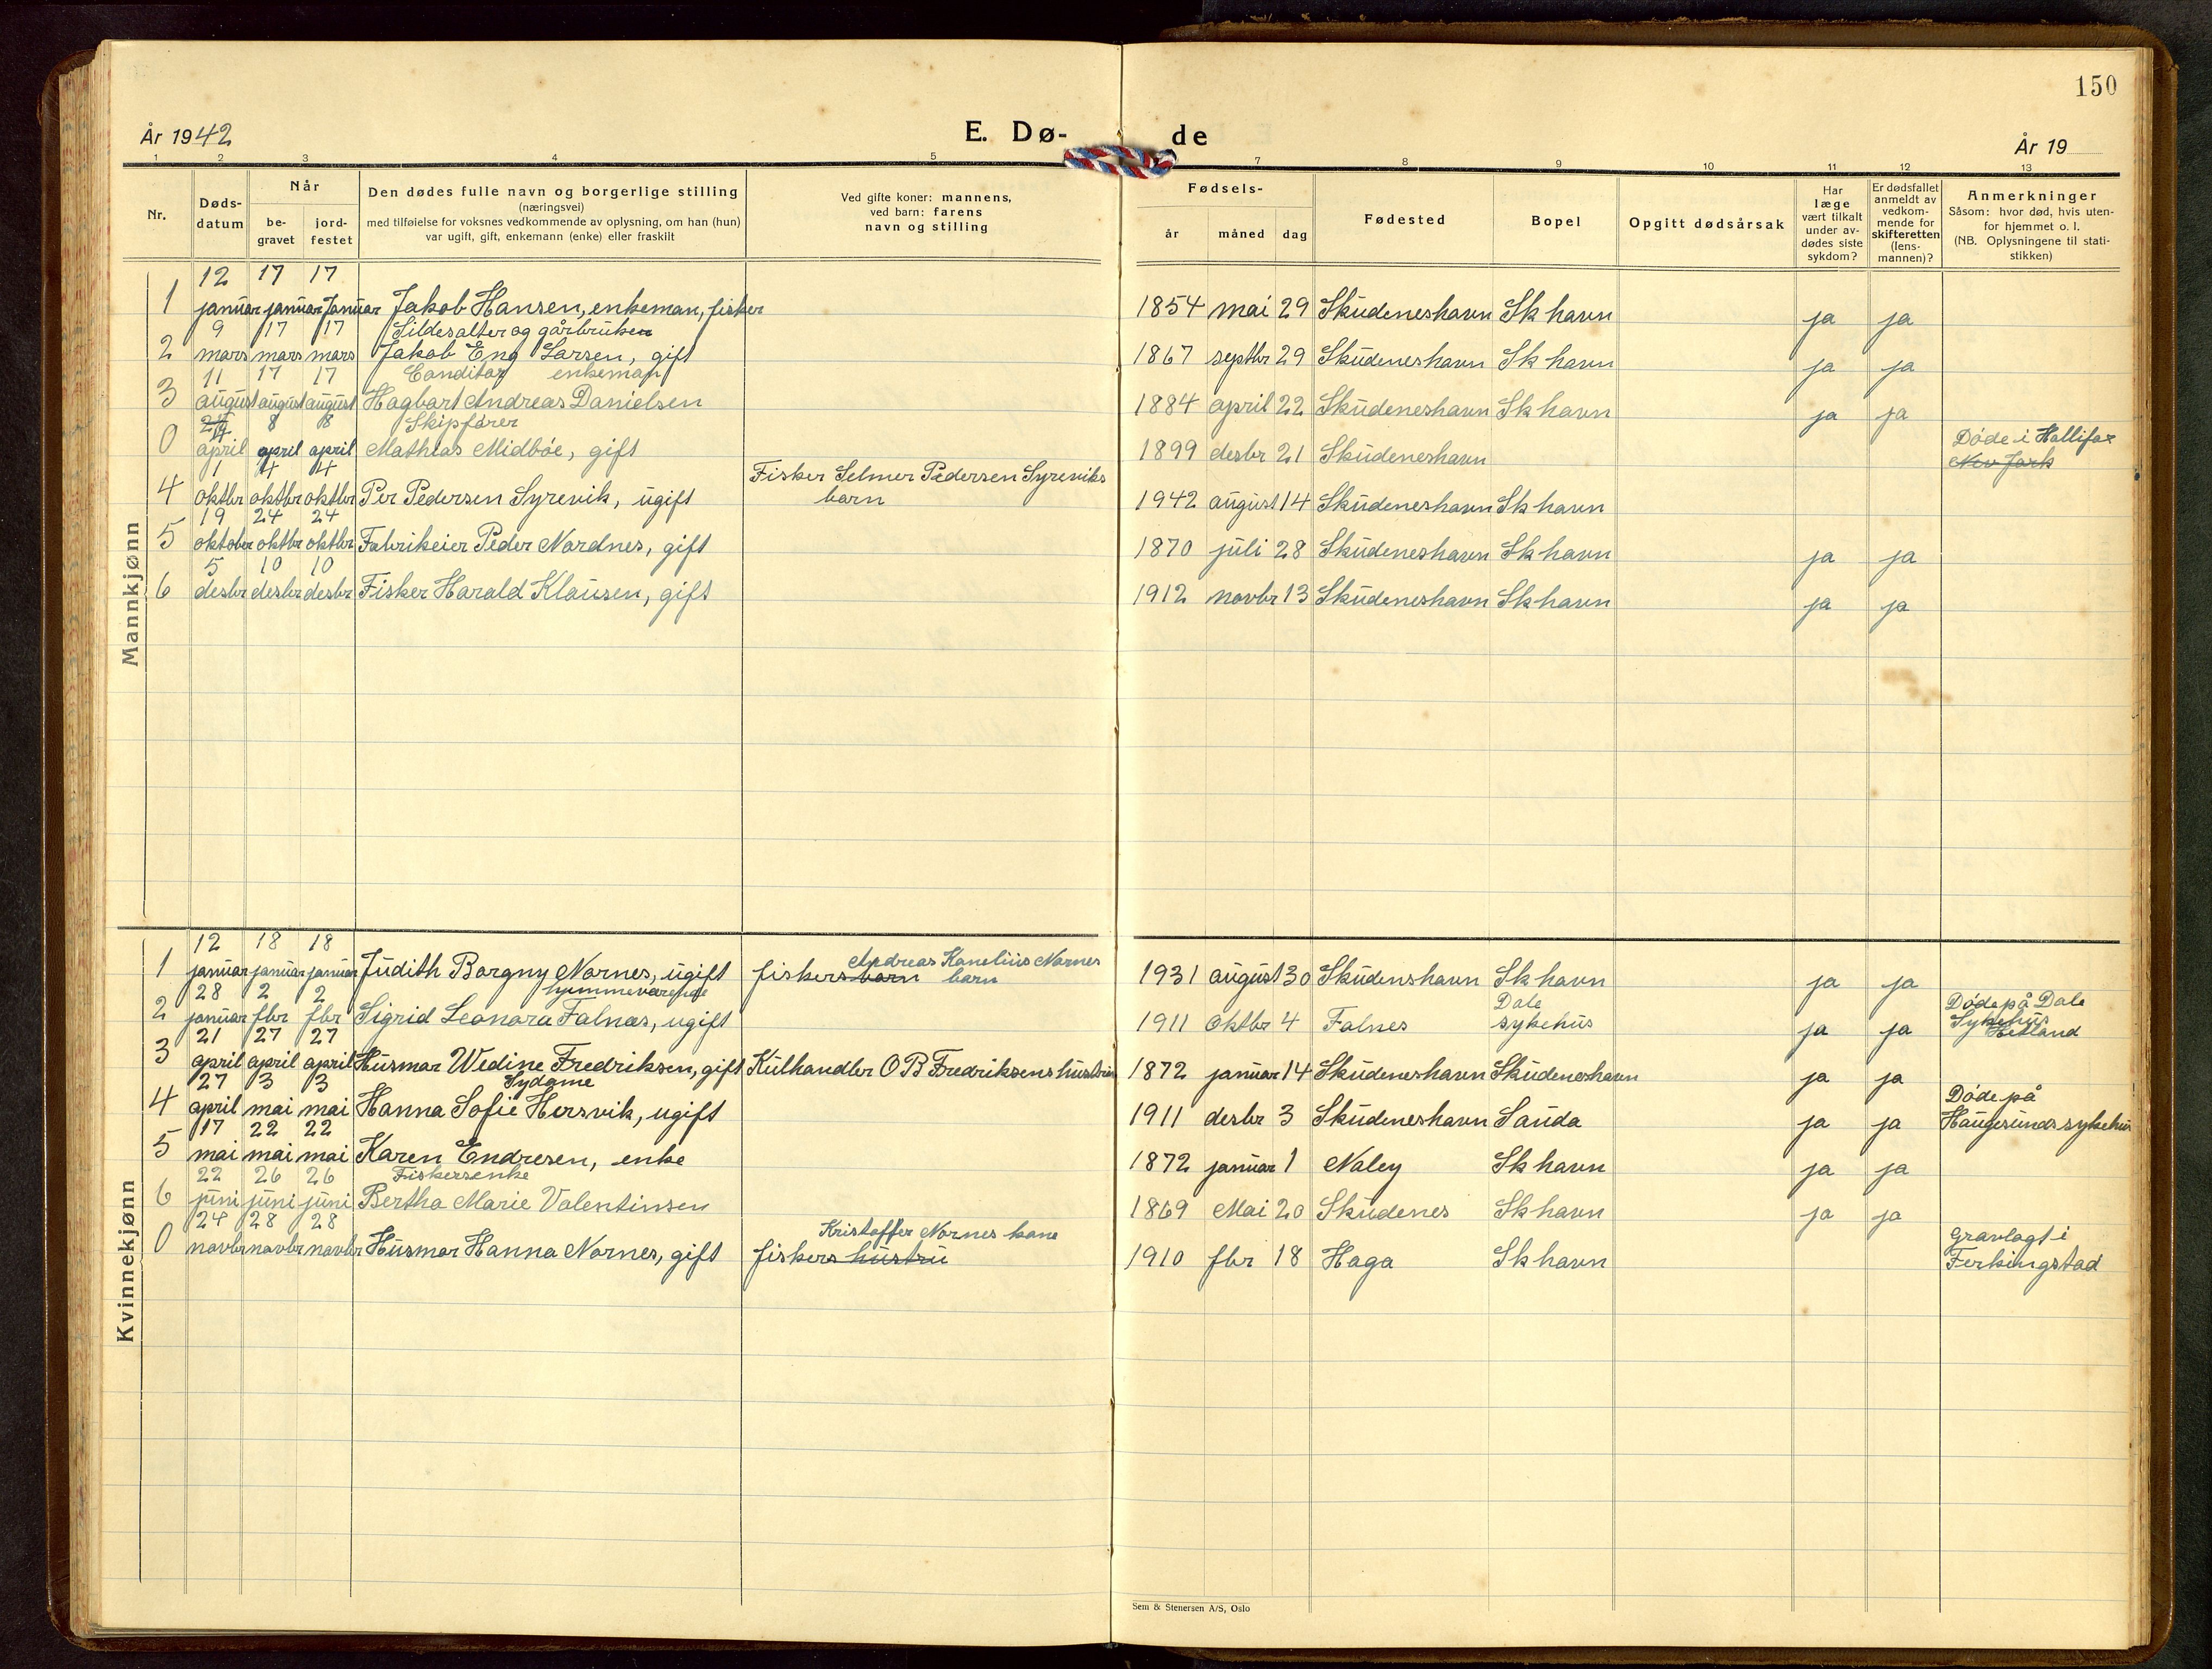 150
År 1942
E. Dø-
de
År 19
1 2 3 4 5 7 8 9 10 11 12 13
Nr.
Døds-
datum
Når
be-
gravet
jord-
festet
Den dødes fulle navn og borgerlige stilling
(næringsvei)
med tilføielse for voksnes vedkommende av oplysning, om han (hun)
var ugift, gift, enkemann (enke) eller fraskilt
Ved gifte koner: mannens,
ved barn: farens
navn og stilling
Fødsels-
år måned dag
Fødested
Bopel
Opgitt dødsårsak
Har
læge
vært tilkalt
under av-
dødes siste
sykdom?
Er dødsfallet
anmeldt av
vedkom-
mende for
skifteretten
(lens-
mannen)?
Anmerkninger
Såsom: hvor død, hvis uten-
for hjemmet o. l.
(NB. Oplysningene til stati-
stikken)
Mannkjønn
12 17 17
1 januar januar januar Jakob Hansen, enkeman, fisker 1854 mai 29 Skudeneshavn Sk havn ja ja
9 17 17 Sildesalter og gårbruker
2 mars mars mars Jakob Eng Larsen, gift 1867 septbr 29 Skudeneshavn Sk havn ja ja
11 17 17 Conditor enkeman
3 august august august Hagbart Andreas Danielsen 1884 april 22 Skudeneshavn Sk havn ja ja
8 8 Skipfører Døde i Hallifax
0 april april april Mathias Midbøe, gift 1899 desbr 21 Skudeneshavn New Jork
1 4 4 Fisker Selmer Pedersen Syreviks
4 oktbr oktbr oktbr Per Pedersen Syrevik, ugift barn 1942 august 14 Skudeneshavn Sk havn
19 24 24
5 oktober oktbr oktbr Fabrikeier Peder Nordnes, gift 1870 juli 28 Skudeneshavn Sk havn ja ja
5 10 10
6 desbr desbr desbr Fisker Harald Klausen, gift 1912 novbr 13 Skudeneshavn Sk havn ja ja
Kvinnekjønn
12 18 18 Andreas Kanelius Nornes
1 januar januar januar Judith Borgny Nornes, ugift fiskers barn barn 1931 august 30 Skudenshavn Sk havn ja ja
28 2 2 hjemmeværende Dale Døde på Dale
2 januar fbr fbr Sigrid Leonora Falnes, ugift 1911 oktbr 4 Falnes sykehus ja ja Sykehus
Hetland
21 27 27
3 april april april Husmor Wedine Fredriksen, gift Kulhandler O B Fredriksens hustru 1872 januar 14 Skudeneshavn Skudeneshavn ja ja
27 3 3 Sydame Døde på
4 april mai mai Hanna Sofie Hersvik, ugift 1911 desbr 3 Skudeneshavn Sauda ja ja Haugesunds sykehus
17 22 22
5 mai mai mai Karen Endresen, enke 1872 januar 1 Naley Sk havn ja ja
22 26 26 Fiskersenke
6 juni juni juni Bertha Marie Valentinsen 1869 Mai 20 Skudenes Sk havn ja ja
24 28 28 Kristoffer Nornes kone Gravlagt i
0 novbr novbr novbr Husmor Hanna Nornes, gift fiskers hustru 1910 fbr 18 Haga Sk havn Ferkingstad
Sem & Stenersen A/S, Oslo